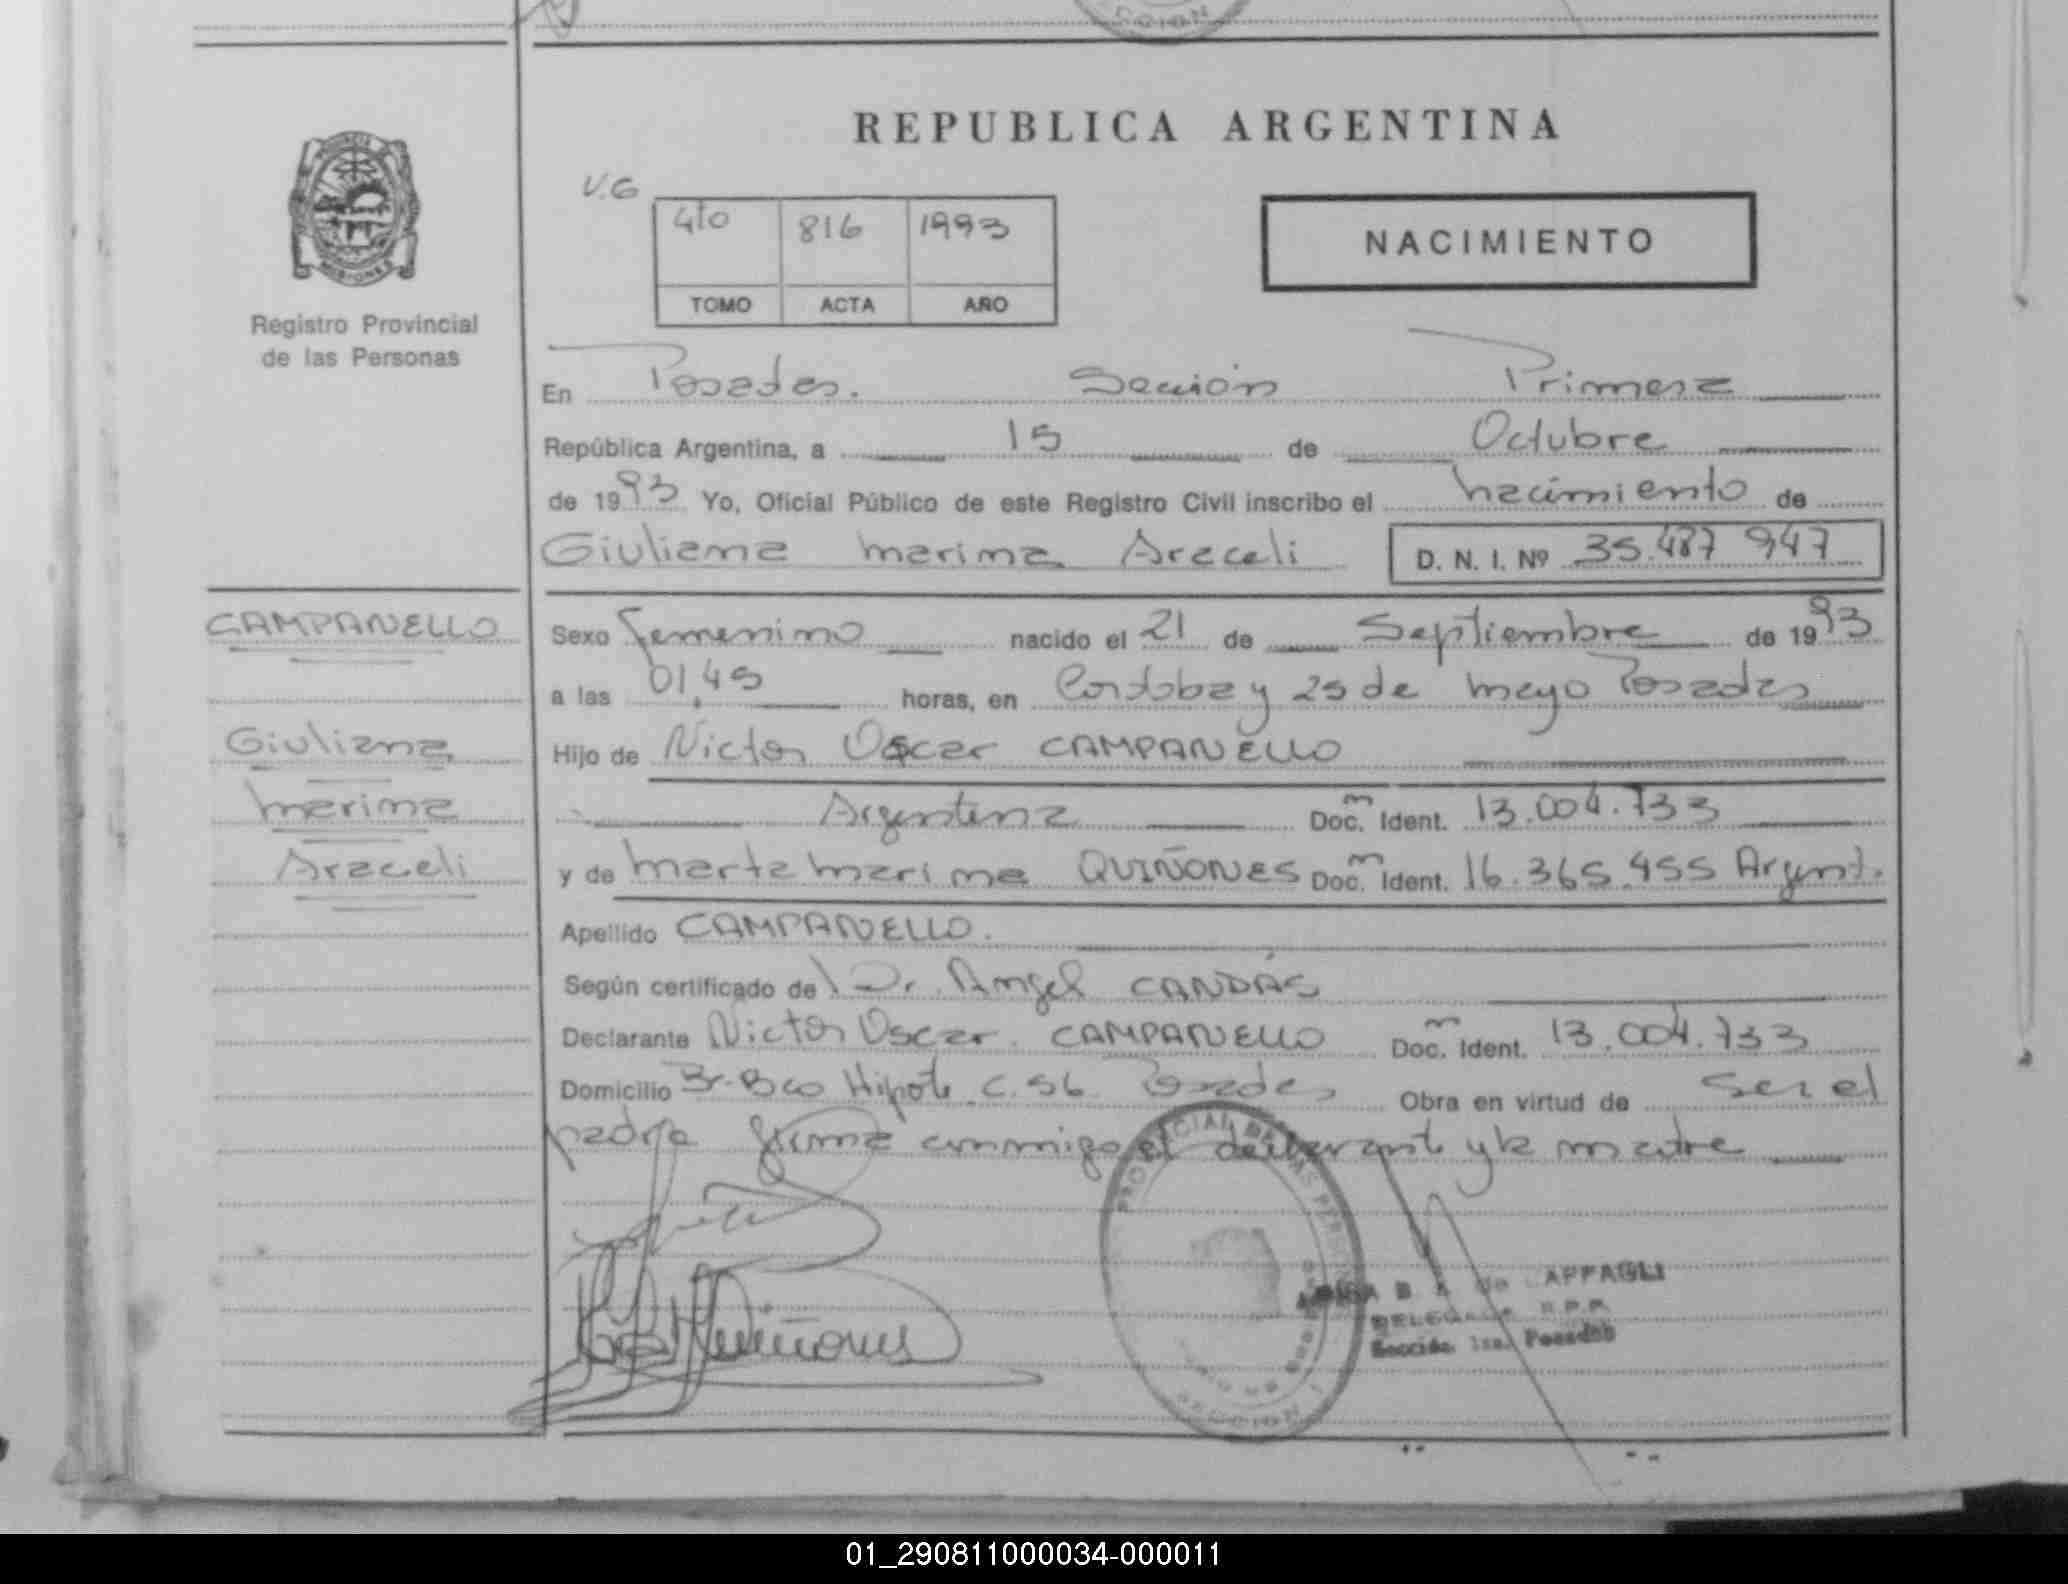 CCION
REPUBLICA ARGENTINA
V.G
4to 816 1993
TOMO ACTA AÑO
NACIMIENTO
MISIONES
Registro Provincial
de las Personas
En Posadas. Sección Primera
República Argentina, a 15 de Octubre
de 1993 Yo, Oficial Público de este Registro Civil inscribo el nacimiento de
Giuliana Marina Araceli D. N. I. Nº 35.487 947
CAMPANELLO
Giuliana
Marina
Araceli
Sexo femenino nacido el 21 de Septiembre de 1993
a las 01,45 horas, en Cordoba y 25 de Mayo Posadas
Hijo de Victor Oscar CAMPANELLO
Argentina Doc. Ident. 13.004.733
y de Marta Marina QUIÑONES Doc. Ident. 16.365.455 Argent.
Apellido CAMPANELLO.
Según certificado del Dr. Angel CANDÁS
Declarante Victor Oscar CAMPANELLO Doc. Ident. 13.004.733
Domicilio Br. Bco Hipot. C. 56 Posadas Obra en virtud de ser el
padre firma conmigo el declarante y la madre
PROVINCIAL DE LAS PERSONAS
SECCION
B. de AFFAGLI
DELEGADA R.P.P.
Sección 1ra. Posadas
Quiñones
01_290811000034-000011